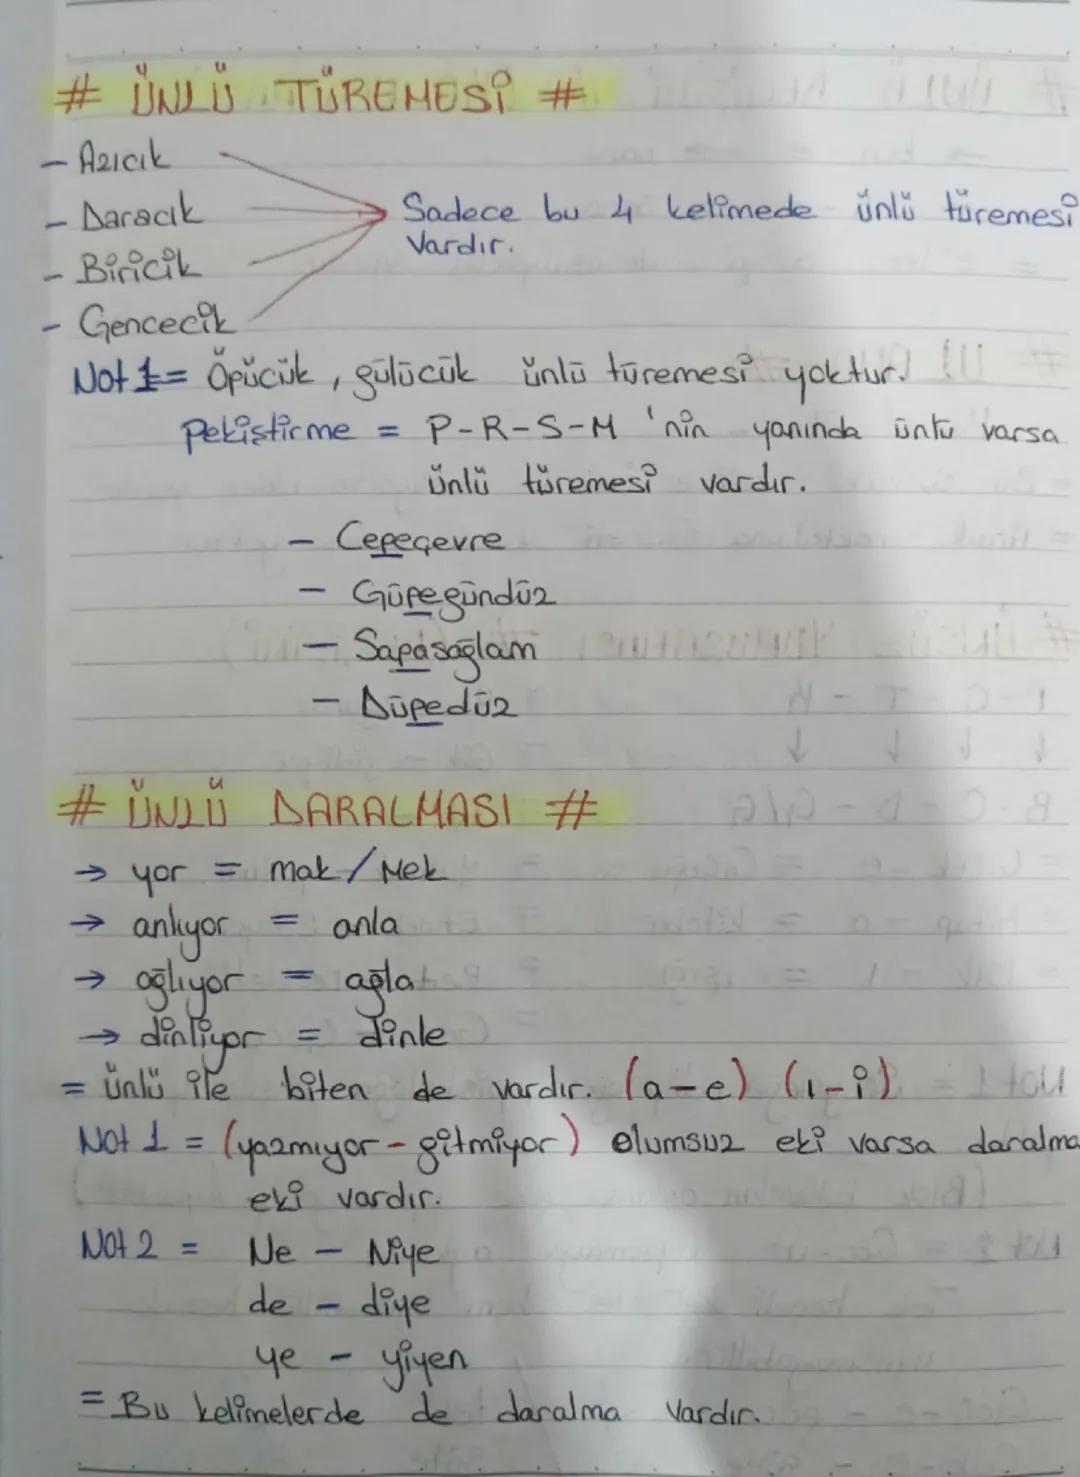 # ÜNLÜ TÜREMESİ #
- Azıcık
- Daracık
- Biricik
- Gencecik
Sadece bu 4 kelimede ünlü türemesi
vardır.
Not 1 = Öpücük, gülücük ünlü türemesi yoktur.
Pekiştirme = P-R-S-M 'nin yanında ünlü varsa
ünlü türemesi vardır.
- Çepeçevre
- Güpegündüz
- Sapasağlam
- Düpedüz
# ÜNLÜ DARALMASI #
→ yor = mak/mek
→ anlıyor = anla
→ ağlıyor = ağla
→ dinliyor = dinle
= ünlü ile biten de vardır. (a-e) (ı-i)
Not 1 = (yazmıyor - gitmiyor) olumsuz eki varsa daralma
eki vardır.
Not 2 = Ne - Niye
de - diye
ye - yiyen
= Bu kelimelerde de daralma vardır.